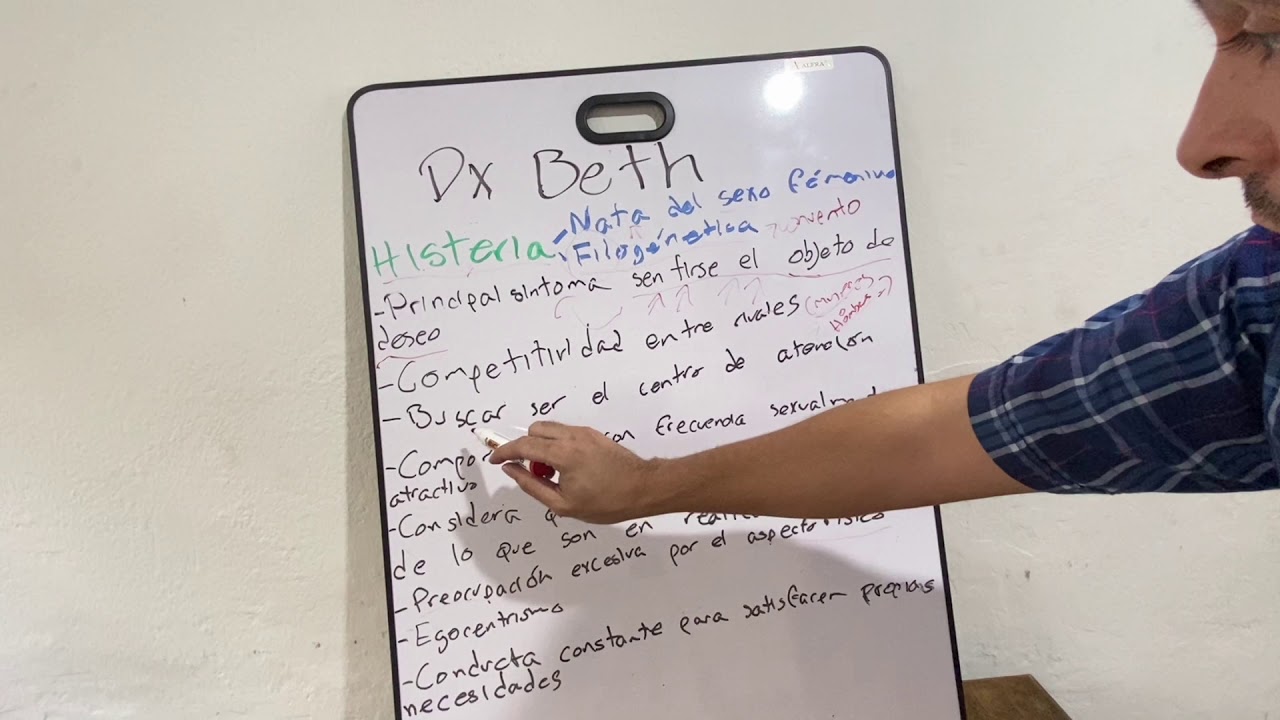 Dx Beth
Nata del sexo fémenino
Histeria
Filogénetica
invento
-Principal sintoma sentirse el objeto de
deseo
-Competitividad entre rivales (Mujeres
Hombre
-Buscar ser el centro de atención
-Compor con frecuencia sexualm
atractivo
-Considera
de lo que son en
-Preocupación excesiva por el aspecto fisico
-Egocentrismo
-Conducta constante para satisfacer propias
necesidades